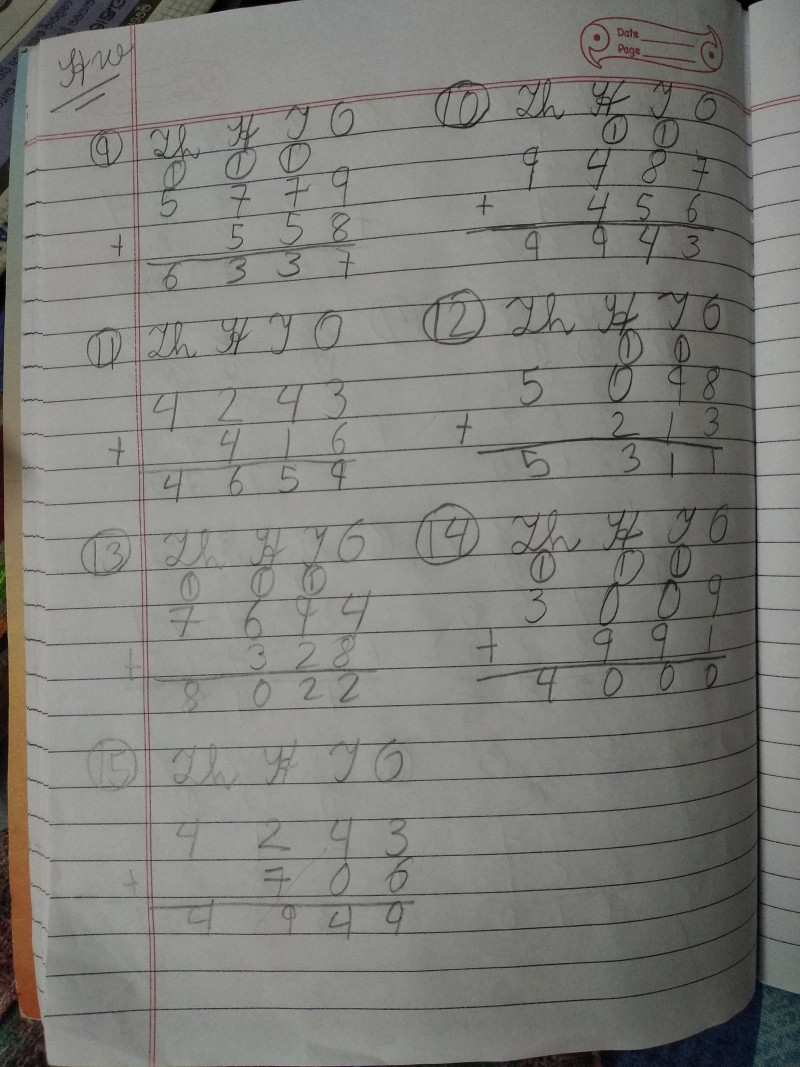 Date
Page
HW
9 Th H T O
1 1 1
5 7 7 9
+ 5 5 8
6 3 3 7
10 Th H T O
1 1
9 4 8 7
+ 4 5 6
9 9 4 3
11 Th H T O
4 2 4 3
+ 4 1 6
4 6 5 9
12 Th H T O
1 1
5 0 9 8
+ 2 1 3
5 3 1 1
13 Th H T O
1 1 1
7 6 9 4
+ 3 2 8
8 0 2 2
14 Th H T O
1 1 1
3 0 0 9
+ 9 9 1
4 0 0 0
15 Th H T O
4 2 4 3
+ 7 0 6
4 9 4 9